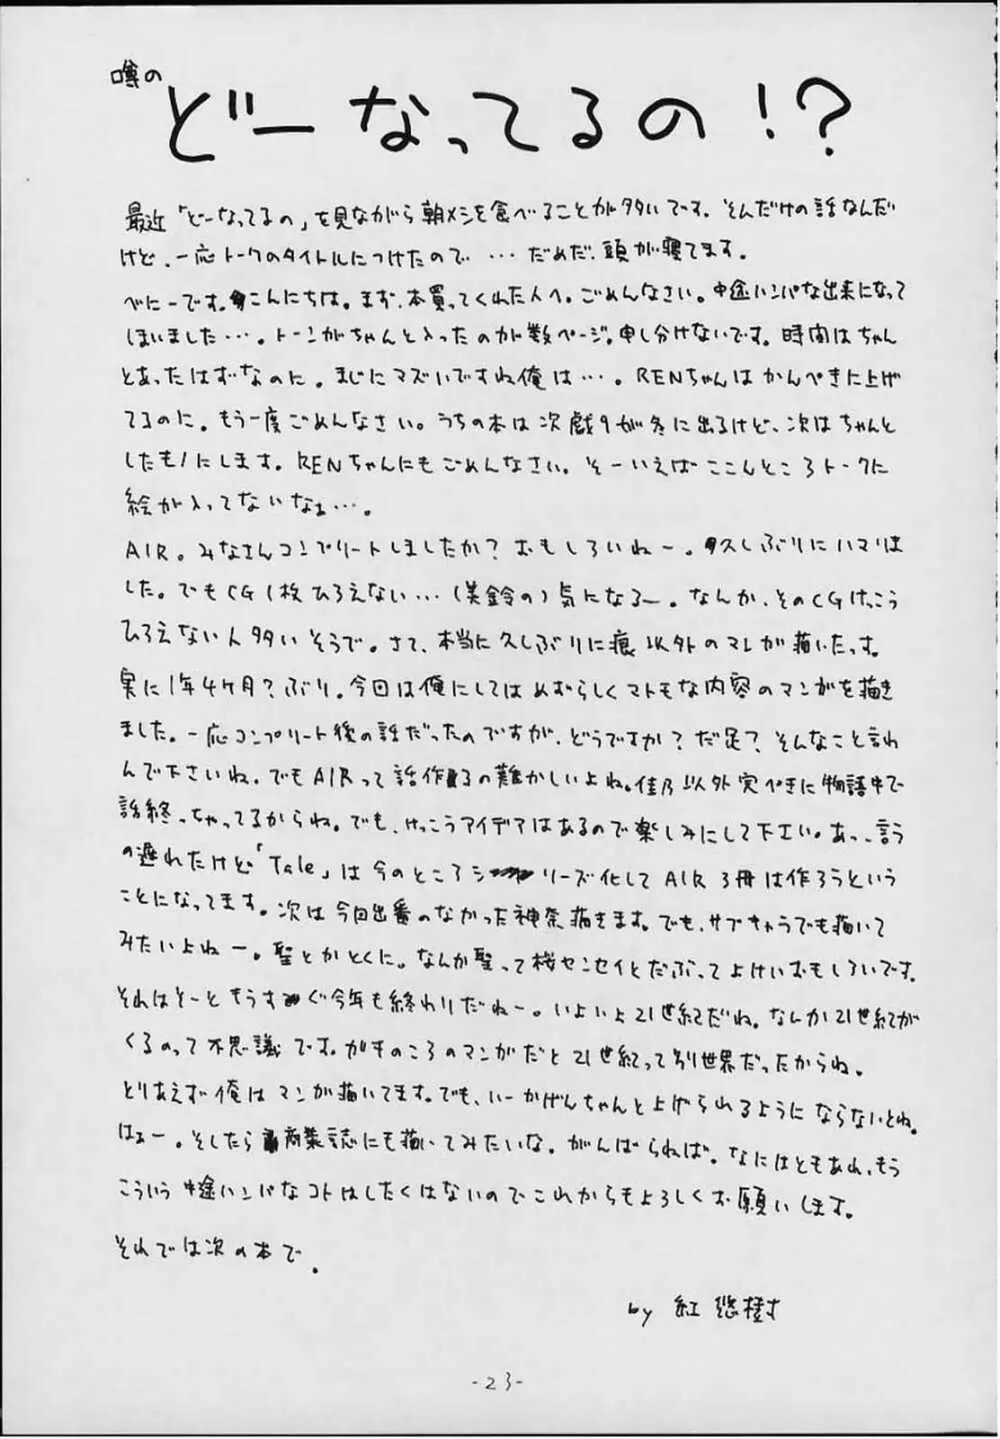 噂の
どーなってるの!?
最近「どーなってるの」を見ながら朝メシを食べることが多いです。そんだけの話なんだ
けど、一応トークのタイトルにつけたので…だめだ、頭が寝てます。
べにーです。こんにちは。まず、本買ってくれた人へ。ごめんなさい。中途ハンパな出来になって
しまいました…。トーンがちゃんと入ったのが数ページ。申し分けないです。時間はちゃん
とあったはずなのに。まじにマズいですね俺は…。RENちゃんはかんぺきに上げ
てるのに。もう一度ごめんなさい。うちの本は次戯9が冬に出るけど、次はちゃんと
したモノにします。RENちゃんにもごめんなさい。そーいえばここんところトークに
絵が入ってないなぁ…。
AIR。みなさんコンプリートしましたか?おもしろいねー。久しぶりにハマりま
した。でもCG1枚ひろえない…(美鈴の)気になるー。なんか、そのCGけっこう
ひろえない人多いそうで。さて、本当に久しぶりに痕以外のマンガ描いたっす。
実に1年4ケ月?ぶり。今回は俺にしてはめずらしくマトモな内容のマンガを描き
ました。一応コンプリート後の話だったのですが、どうですか?だ足?そんなこと言わ
んで下さいね。でもAIRって話作るの難かしいよね。佳乃以外完ぺきに物語中で
話終っちゃってるからね。でも、けっこうアイデアはあるので楽しみにして下さい。あっ、言う
の遅れたけど「Tale」は今のところシリーズ化してAIR3冊は作ろうという
ことになってます。次は今回出番のなかった神奈描きます。でも、サブキャラでも描いて
みたいよねー。聖とかとくに。なんか聖って桜センセイとだぶってよけいおもしろいです。
それはそーともうすぐ今年も終わりだねー。いよいよ21世紀だね。なんか21世紀が
くるのって不思議です。ガキのころのマンガだと21世紀って別世界だったからね。
とりあえず俺はマンガ描いてます。でも、いーかげんちゃんと上げられるようにならないとね。
はぁー。そしたら商業誌にも描いてみたいな。がんばらねば。なにはともあれ、もう
こういう中途ハンパなコトはしたくはないのでこれからもよろしくお願いします。
それでは次の本で。
by 紅悠樹
-23-